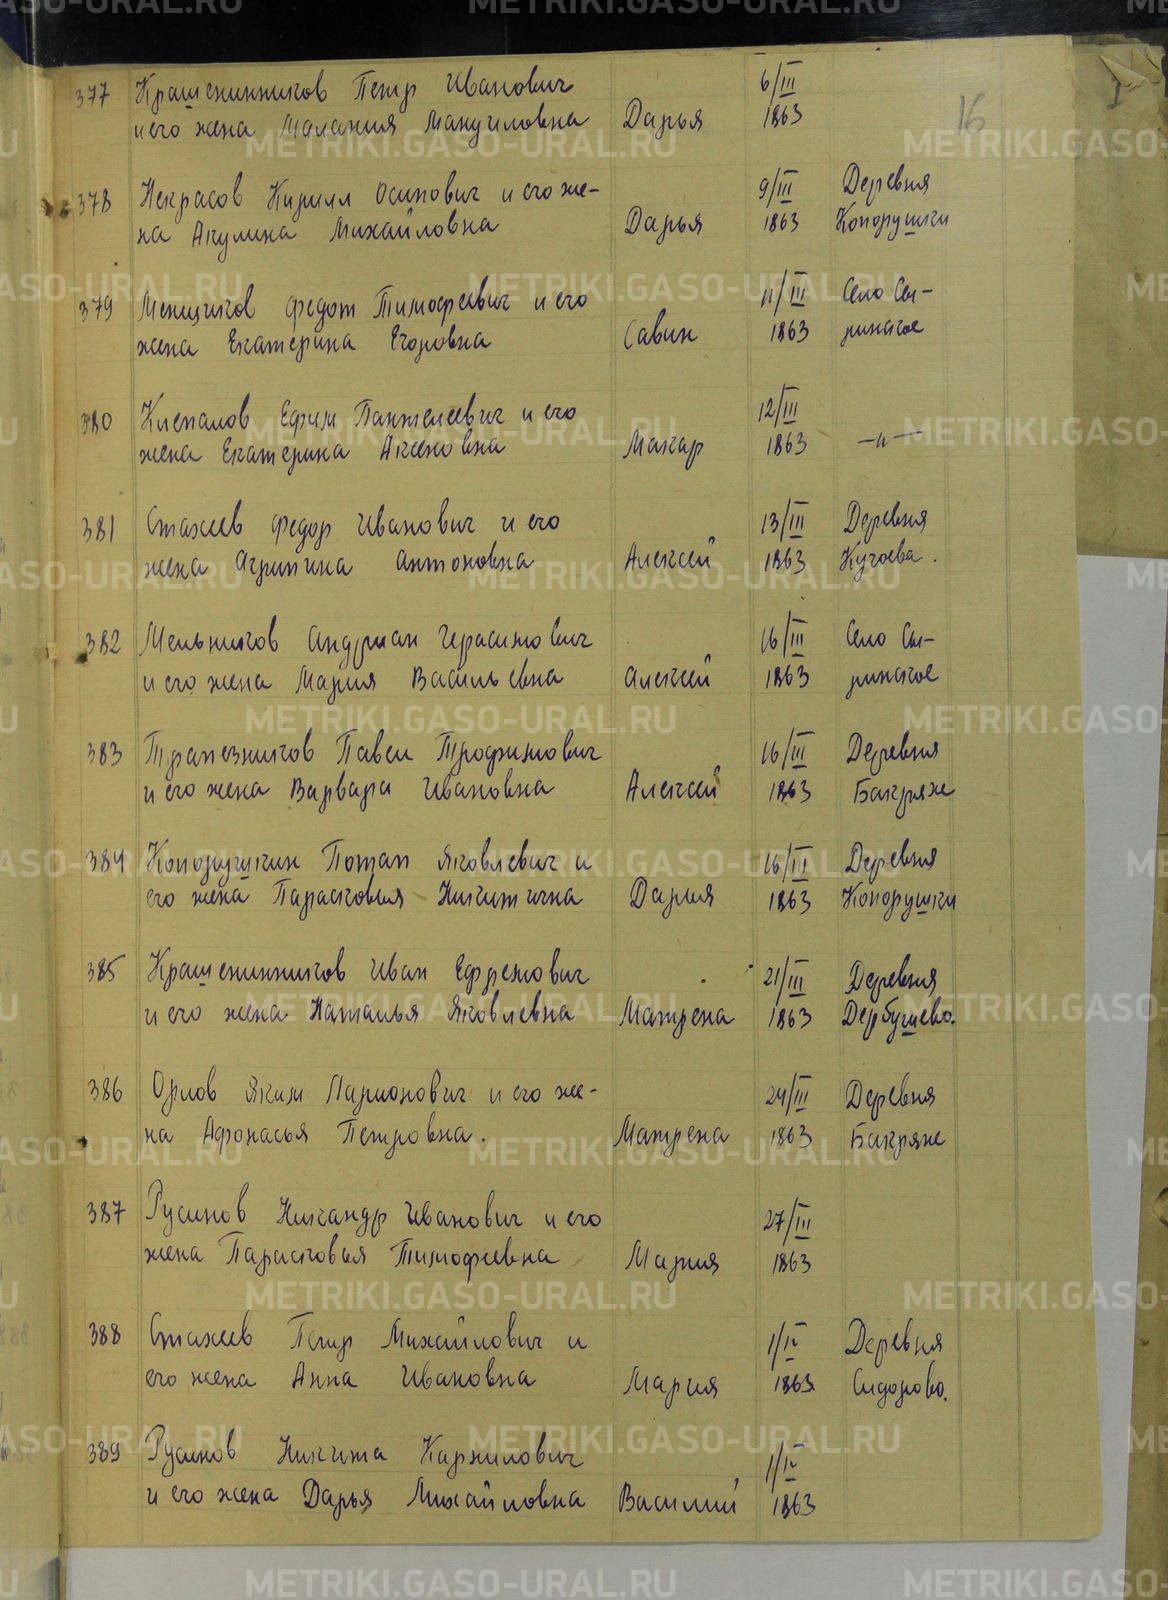 16
377 Крашенинников Петр Иванович 6/III
и его жена Малания Мануиловна Дарья 1863
378 Некрасов Кирилл Осипович и его же- 9/III Деревня
на Акулина Михайловна Дарья 1863 Копорушки
379 Менщиков Федот Тимофеевич и его 11/III Село Сы-
жена Екатерина Егоровна Савин 1863 ринское
380 Клепалов Ефим Пантелеевич и его 12/III
жена Екатерина Аксеновна Макар 1863 —"—
381 Стахеев Федор Иванович и его 13/III Деревня
жена Агрипина Антоновна Алексей 1863 Кучоева.
382 Мельников Андриан Герасимович 16/III Село Сы-
и его жена Мария Васильевна Алексей 1863 ринское
383 Трапезников Павел Трофимович 16/III Деревня
и его жена Варвара Ивановна Алексей 1863 Бакряже
384 Копорушкин Потап Яковлевич и 16/III Деревня
его жена Парасковья Никитична Дария 1863 Копорушки
385 Крашенинников Иван Ефремович 21/III Деревня
и его жена Наталья Яковлевна Матрена 1863 Дербушево.
386 Орлов Яким Ларионович и его же- 24/III Деревня
на Афонасья Петровна. Матрена 1863 Бакряже
387 Русинов Никандр Иванович и его 27/III
жена Парасковья Тимофеевна Мария 1863
388 Стахеев Петр Михайлович и 1/IV Деревня
его жена Анна Ивановна Мария 1863 Сидорово.
389 Русинов Никита Карнилович 1/IV
и его жена Дарья Михайловна Василий 1863
METRIKI.GASO-URAL.RU